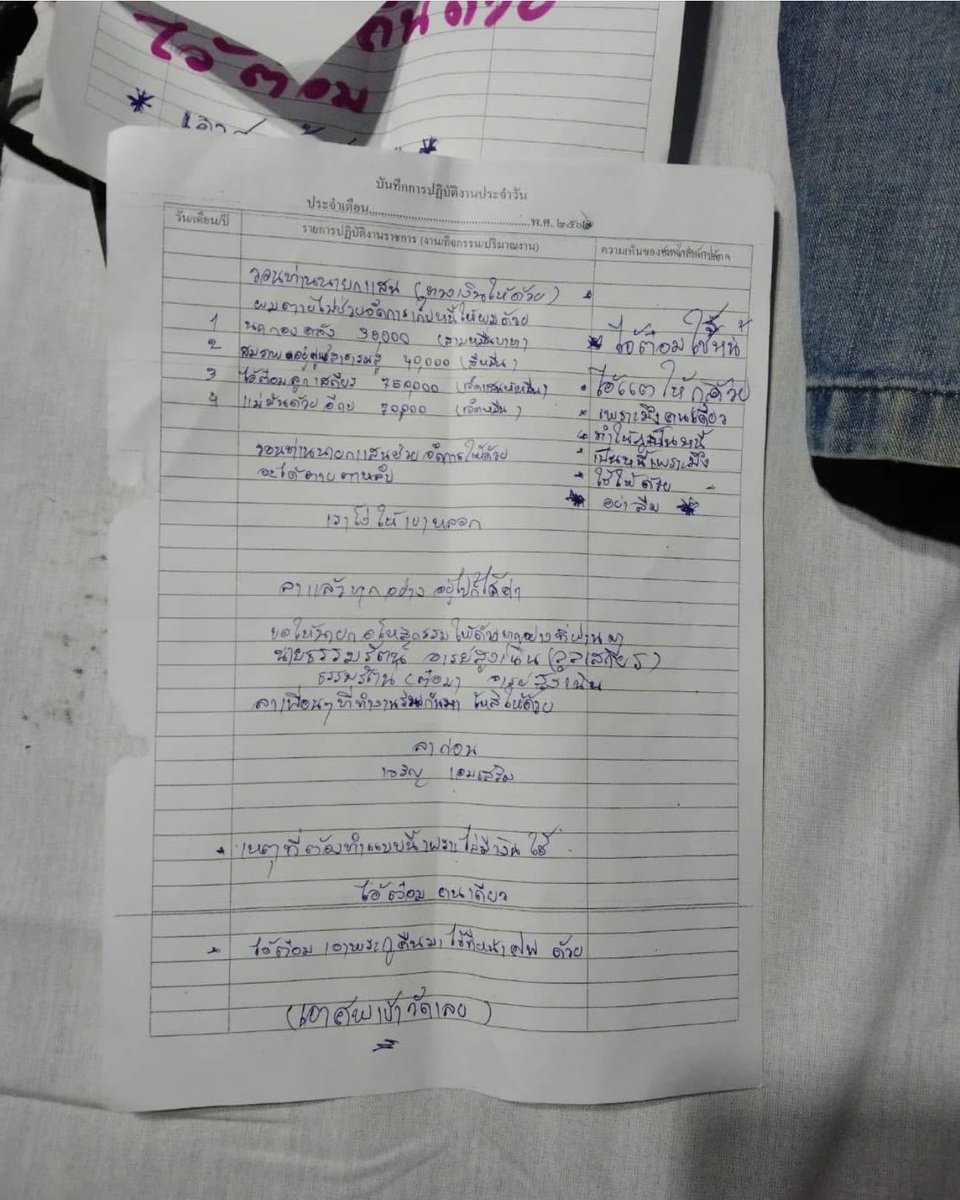 ไอ้ต๋อม
บันทึกการปฏิบัติงานประจำวัน
ประจำเดือน..........พ.ศ. ๒๕๖๖
วัน/เดือน/ปี
รายการปฏิบัติงานราชการ (งาน/กิจกรรม/ปริมาณงาน)
ความเห็นของ
วอนท่านนายกแสน (ทวงเงินให้ด้วย)
ผมตายไปช่วยจัดการเก็บหนี้ให้ผมด้วย
1 30,000 (สามหมื่นบาท)
2 40,000 (สี่หมื่น)
3 ไอ้ต๋อมลูกเสถียร 750,000 (เจ็ดแสนห้าหมื่น)
4 70,000 (เจ็ดหมื่น)
ไอ้ต๋อมใช้หนี้
ให้กูด้วย
เพราะมึงคนเดียว
ทำให้กูเป็นหนี้
เป็นหนี้เพราะมึง
ใช้ให้ด้วย
อย่าลืม
วอนท่านนายกแสนช่วยจัดการให้ด้วย
จะได้ตายตาหลับ
เราโง่ให้เขาหลอก
ลาแล้วทุกอย่าง อยู่ไปก็ไร้ค่า
ขอให้นายกอโหสิกรรมให้ด้วยทุกอย่างที่ผ่านมา
นายธรรมรัตน์ อารย์สูงเนิน (ลูกเสถียร)
ธรรมรัตน์ (ต๋อม) อารย์สูงเนิน
ลาเพื่อนๆที่ทำงานร่วมกันมา ให้ด้วย
ลาก่อน
เจริญ
เหตุที่ต้องทำแบบนี้เพราะไม่มีเงินใช้
ไอ้ต๋อม คนเดียว
ไอ้ต๋อม เอาพระกูคืนมาไว้ที่หน้าศพ ด้วย
(เอาศพเข้าวัดเลย)